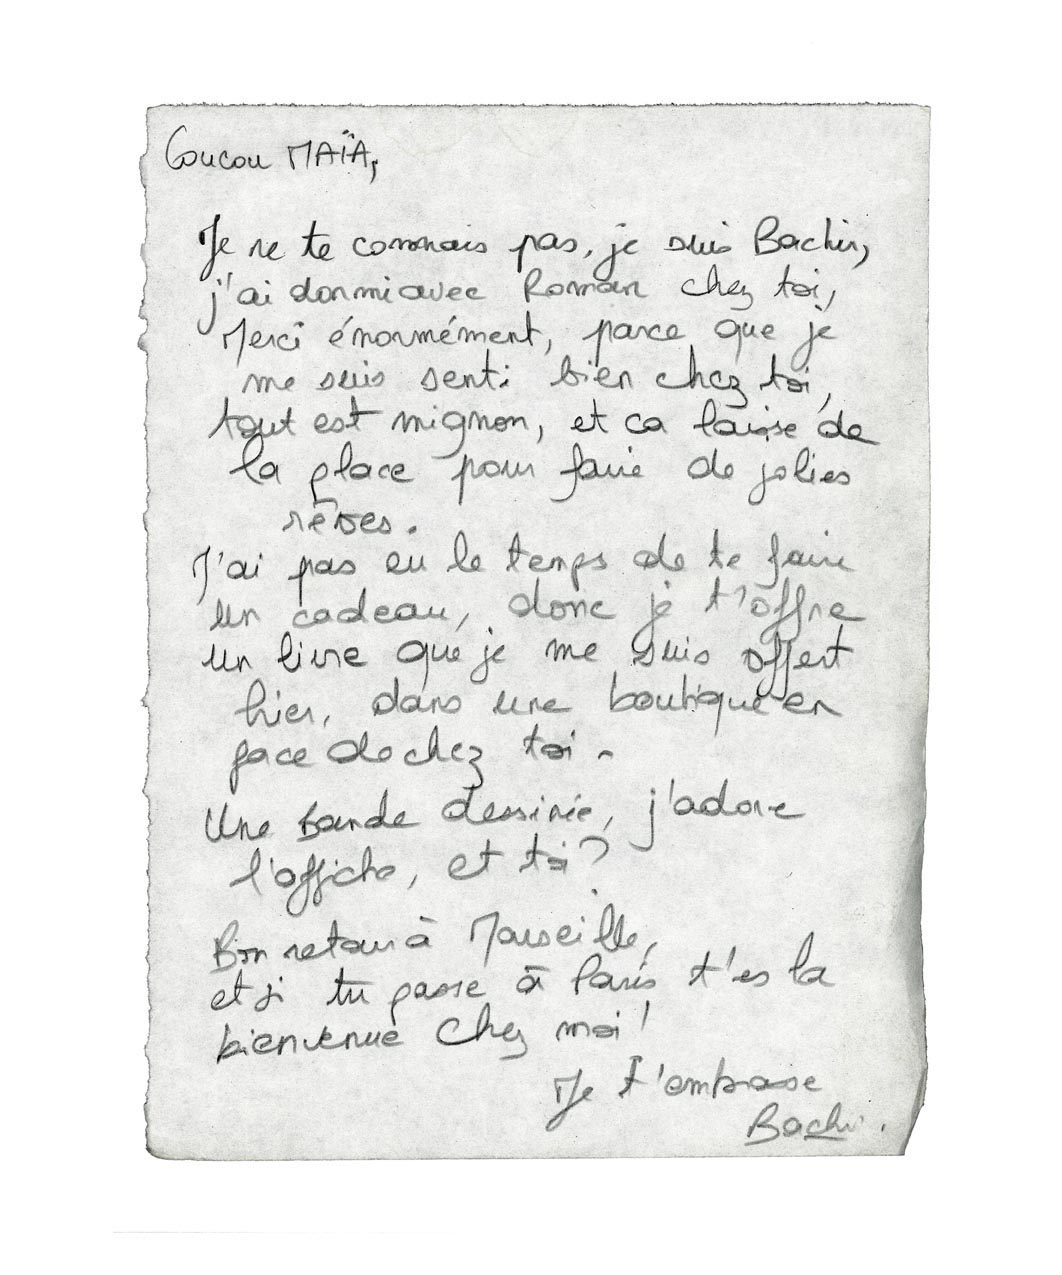 Coucou MAÏA,
Je ne te connais pas, je suis Bachir,
j'ai dormi avec Roman chez toi,
Merci énormément, parce que je
me suis senti bien chez toi,
tout est mignon, et ca laisse de
la place pour faire de jolies
rêves.
J'ai pas eu le temps de te faire
un cadeau, donc je t'offre
un livre que je me suis offert
hier, dans une boutique en
face de chez toi.
Une bande dessinée, j'adore
l'affiche, et toi ?
Bon retour à Marseille,
et si tu passe à Paris t'es la
bienvenue chez moi !
Je t'embrasse
Bachir.